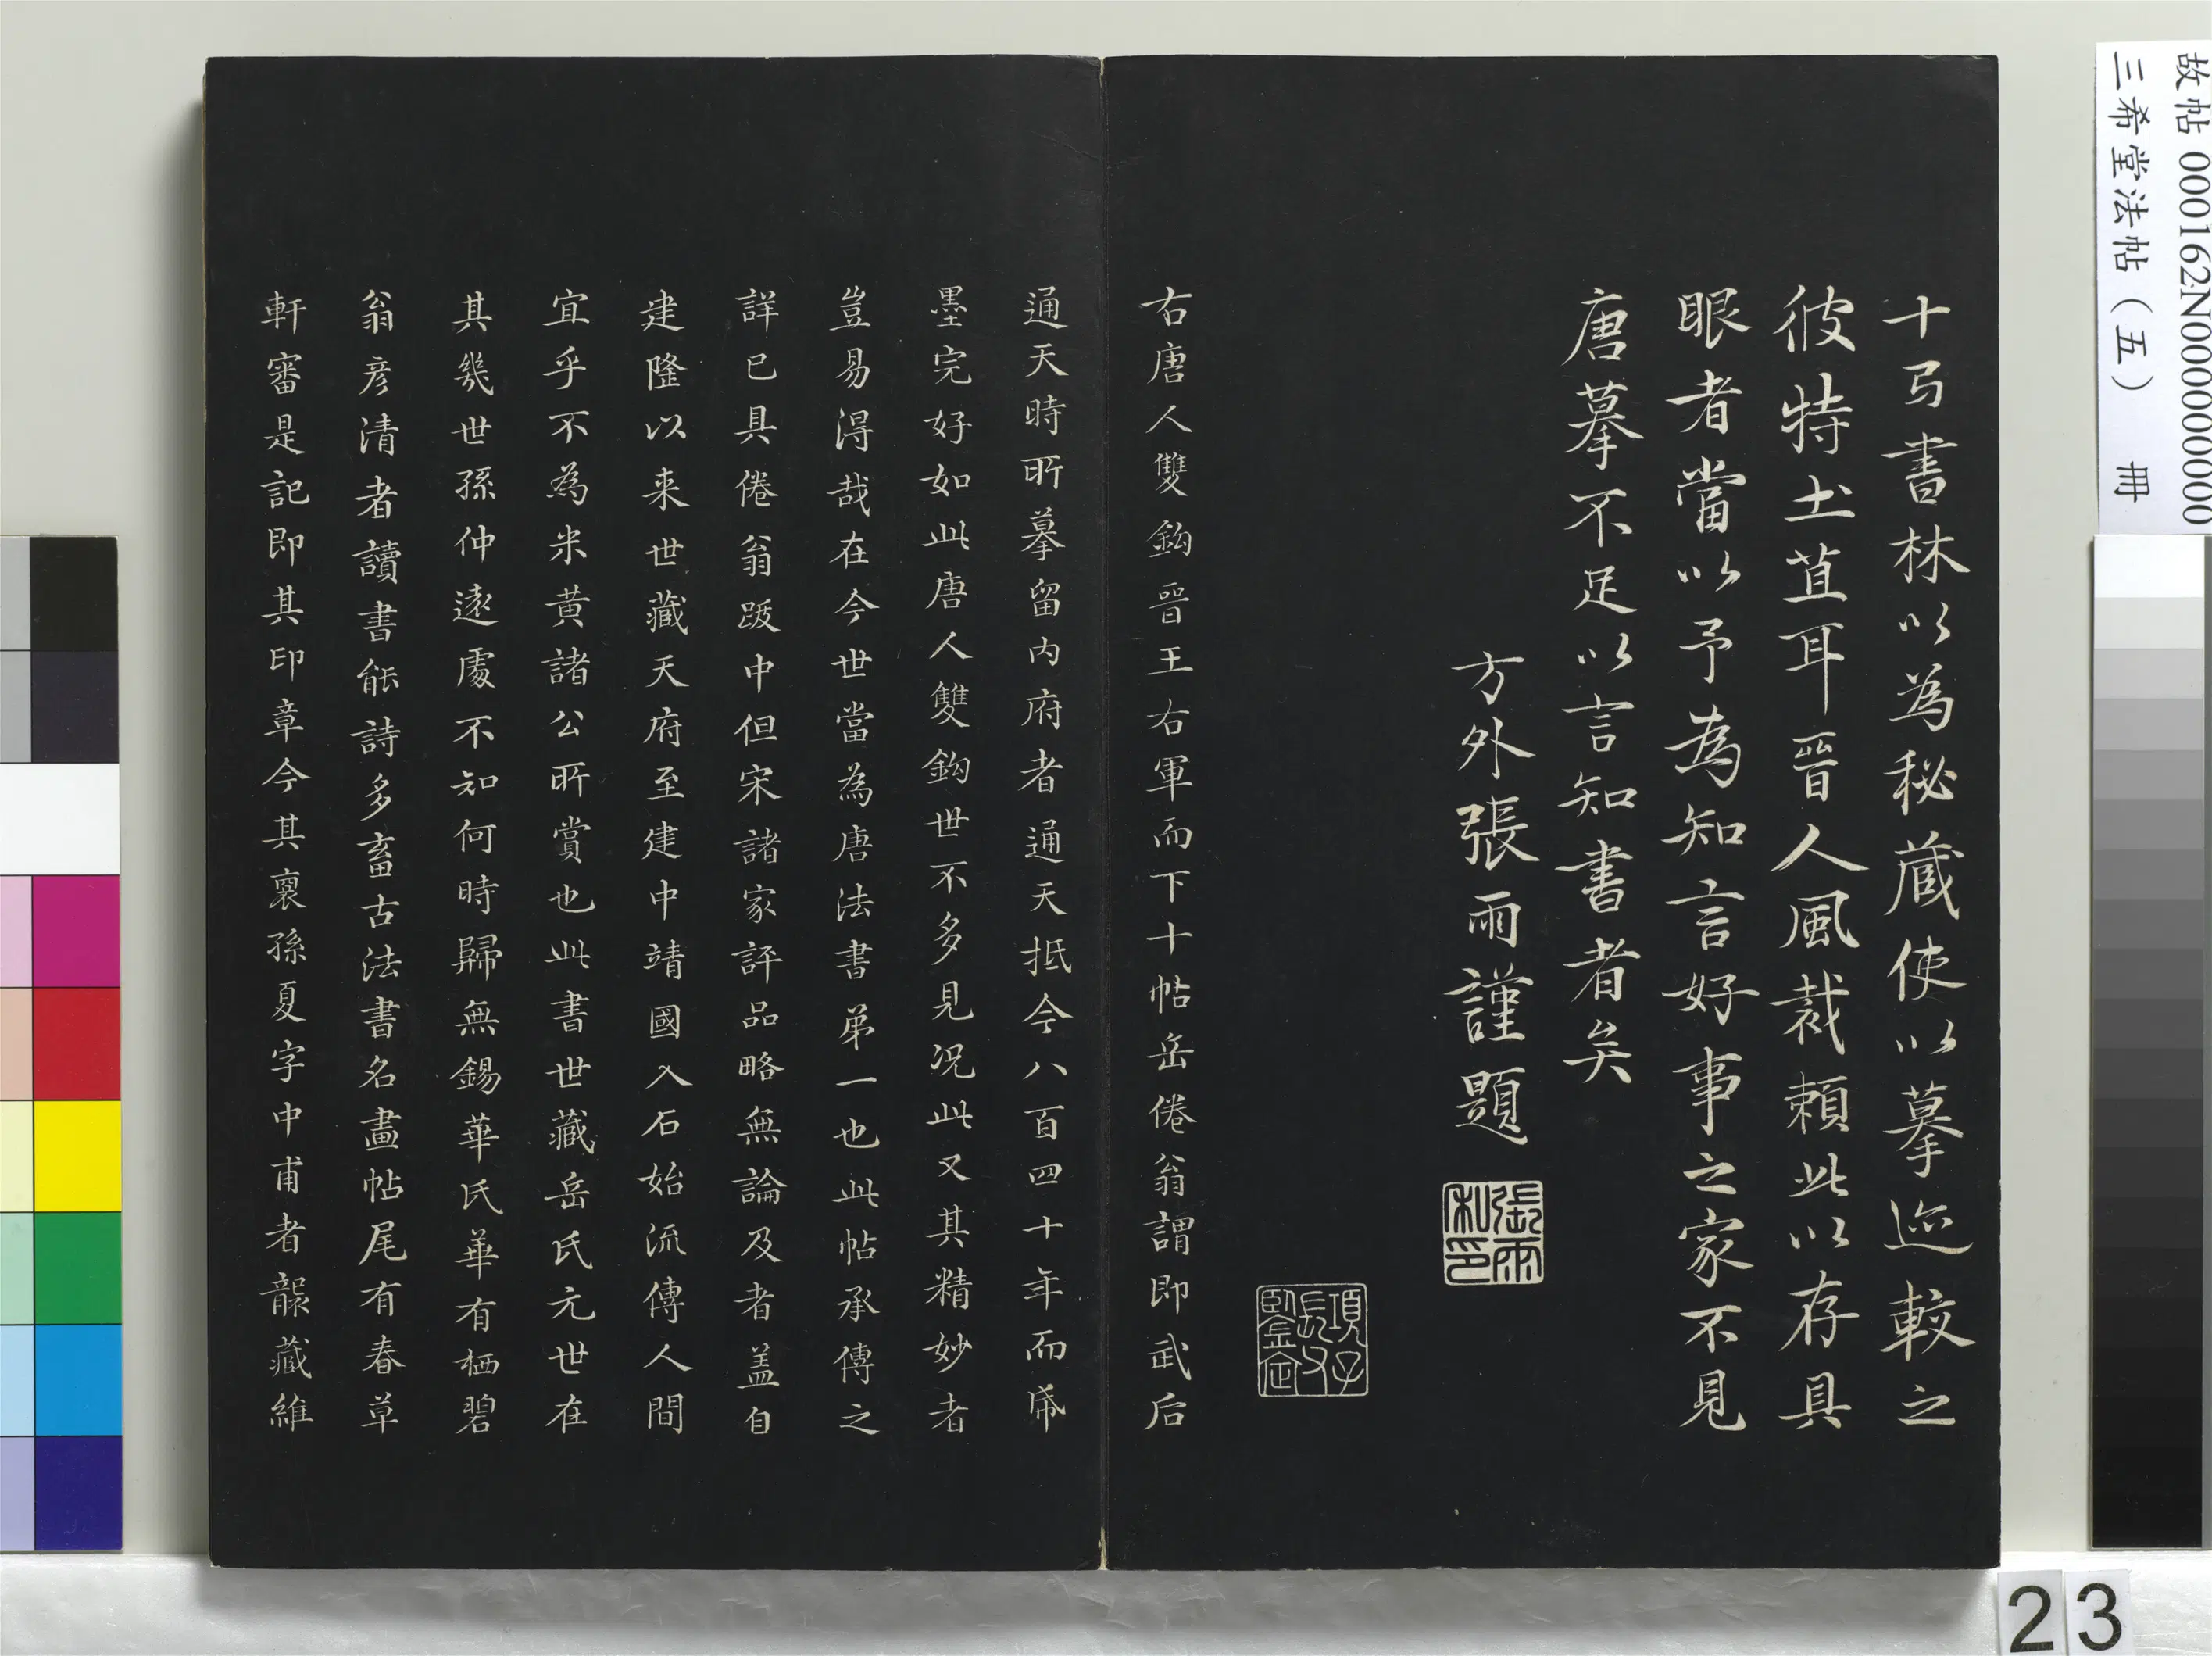 十弓書林以為秘蔵使以摹迹較之
彼特土苴耳晉人風裁賴此以存具
眼者當以予為知言好事之家不見
唐摹不足以言知書者矣
方外張雨謹題
張雨私印
項子長父鑒定
右唐人雙鈎晉王右軍而下十帖岳倦翁謂即武后
通天時所摹留内府者通天抵今八百四十年而帋
墨完好如此唐人雙鈎世不多見况此又其精妙者
豈易得哉在今世當為唐法書弟一也此帖承傳之
詳已具倦翁跋中但宋諸家評品略無論及者盖自
建隆以来世藏天府至建中靖國入石始流傳人間
宜乎不為米黄諸公所賞也此書世藏岳氏元世在
其幾世孫仲遠處不知何時歸無錫華氏華有栖碧
翁彦清者讀書能詩多畜古法書名畫帖尾有春草
軒審是記即其印章今其裔孫夏字中甫者襲藏維
故帖 000162N000000000
三希堂法帖（五） 冊
23